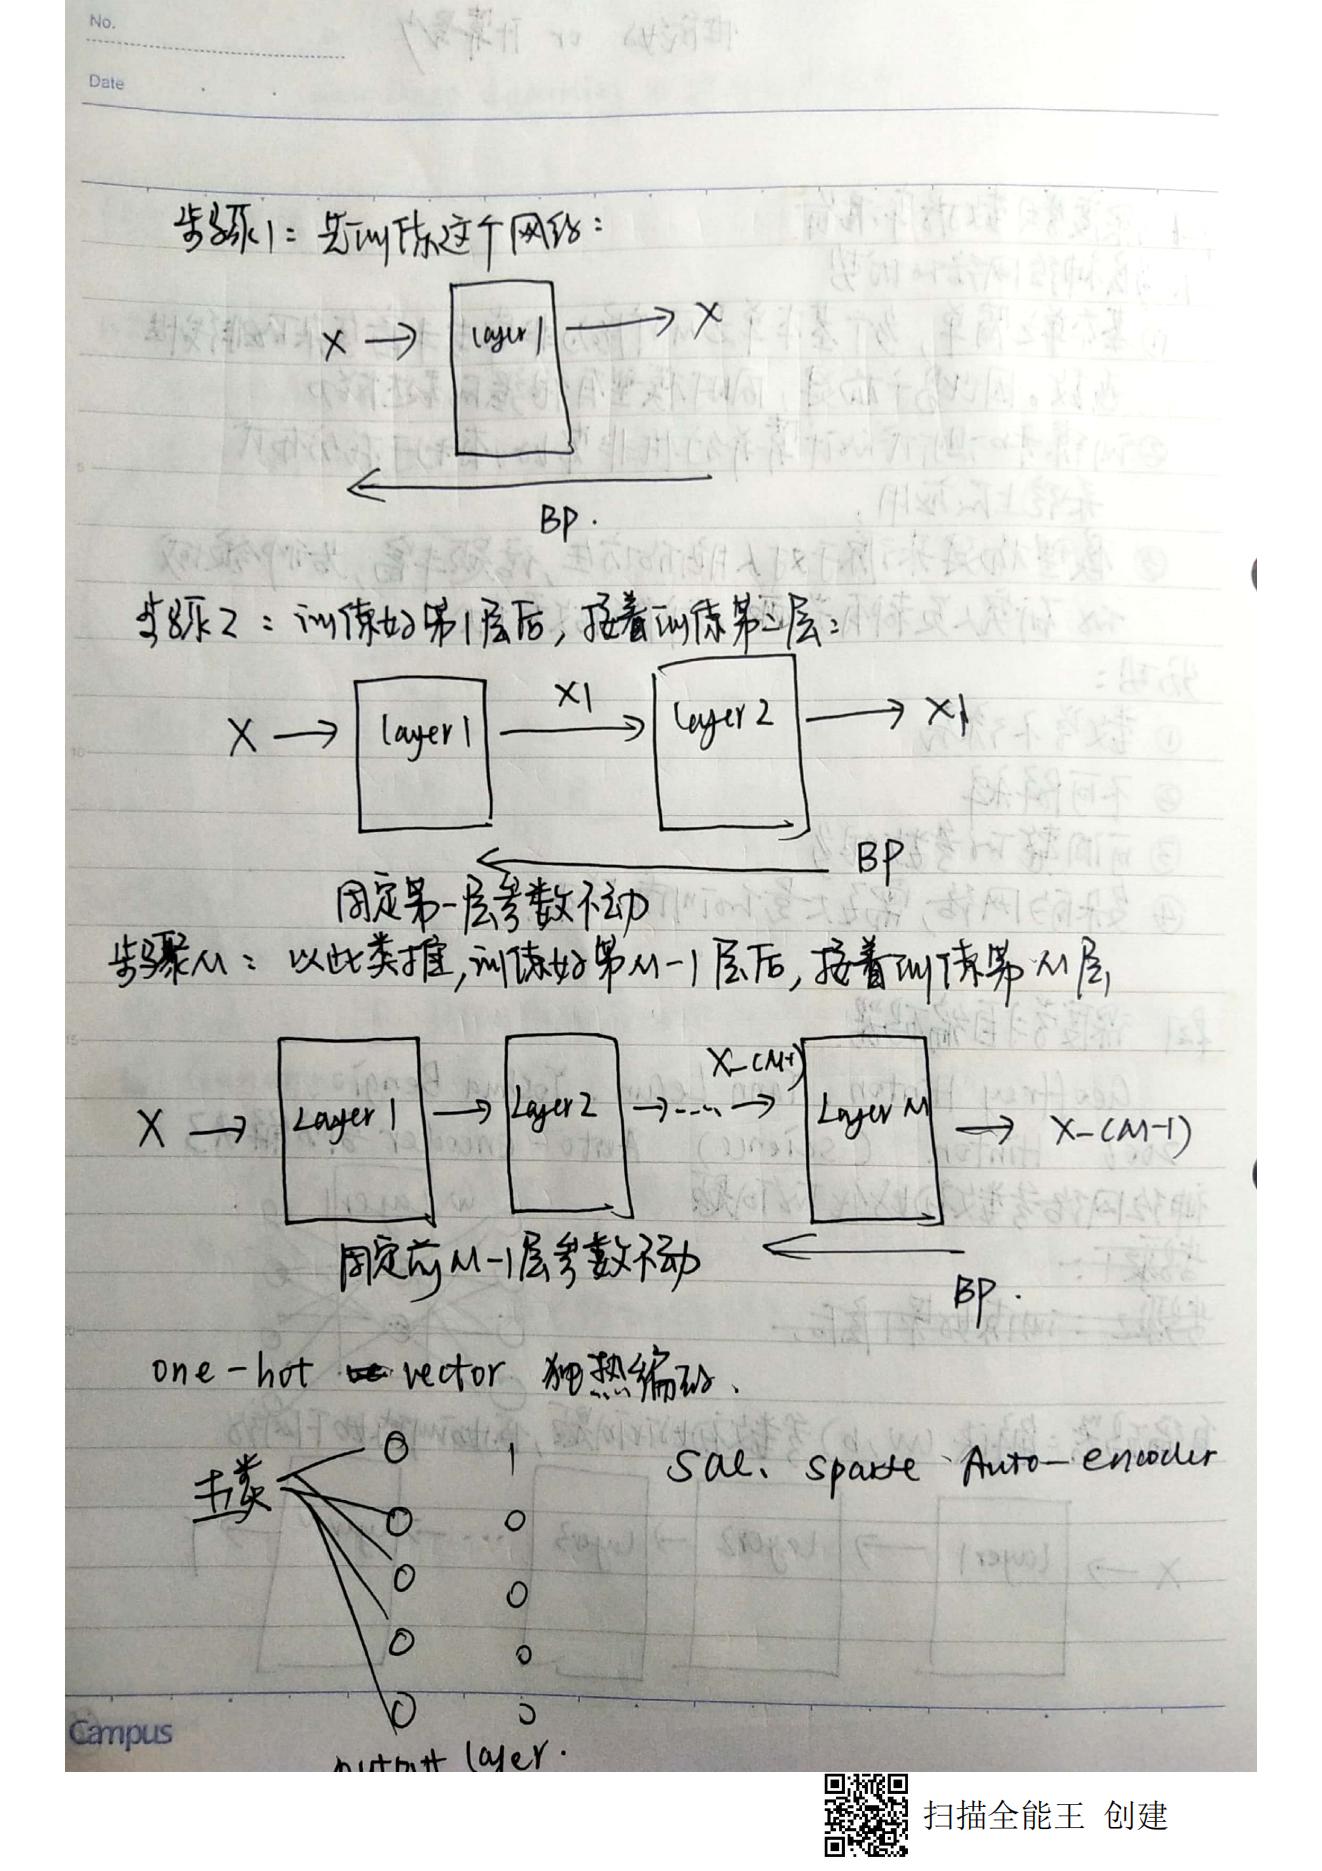 No.
Date
步骤1：先训练这个网络：
X → layer1 → X
BP.
步骤2：训练好第1层后，接着训练第二层：
X → layer1 X1 → layer2 → X1
BP
固定第一层参数不动
步骤M：以此类推，训练好第M-1层后，接着训练第M层，
X → Layer1 → Layer2 → ... X-(M-1) → Layer M → X-(M-1)
固定前M-1层参数不动
BP.
one-hot vector 独热编码.
五类 0 1
sae. sparse Auto-encoder
0 0
0 0
0 0
0 0
output layer.
Campus
扫描全能王 创建